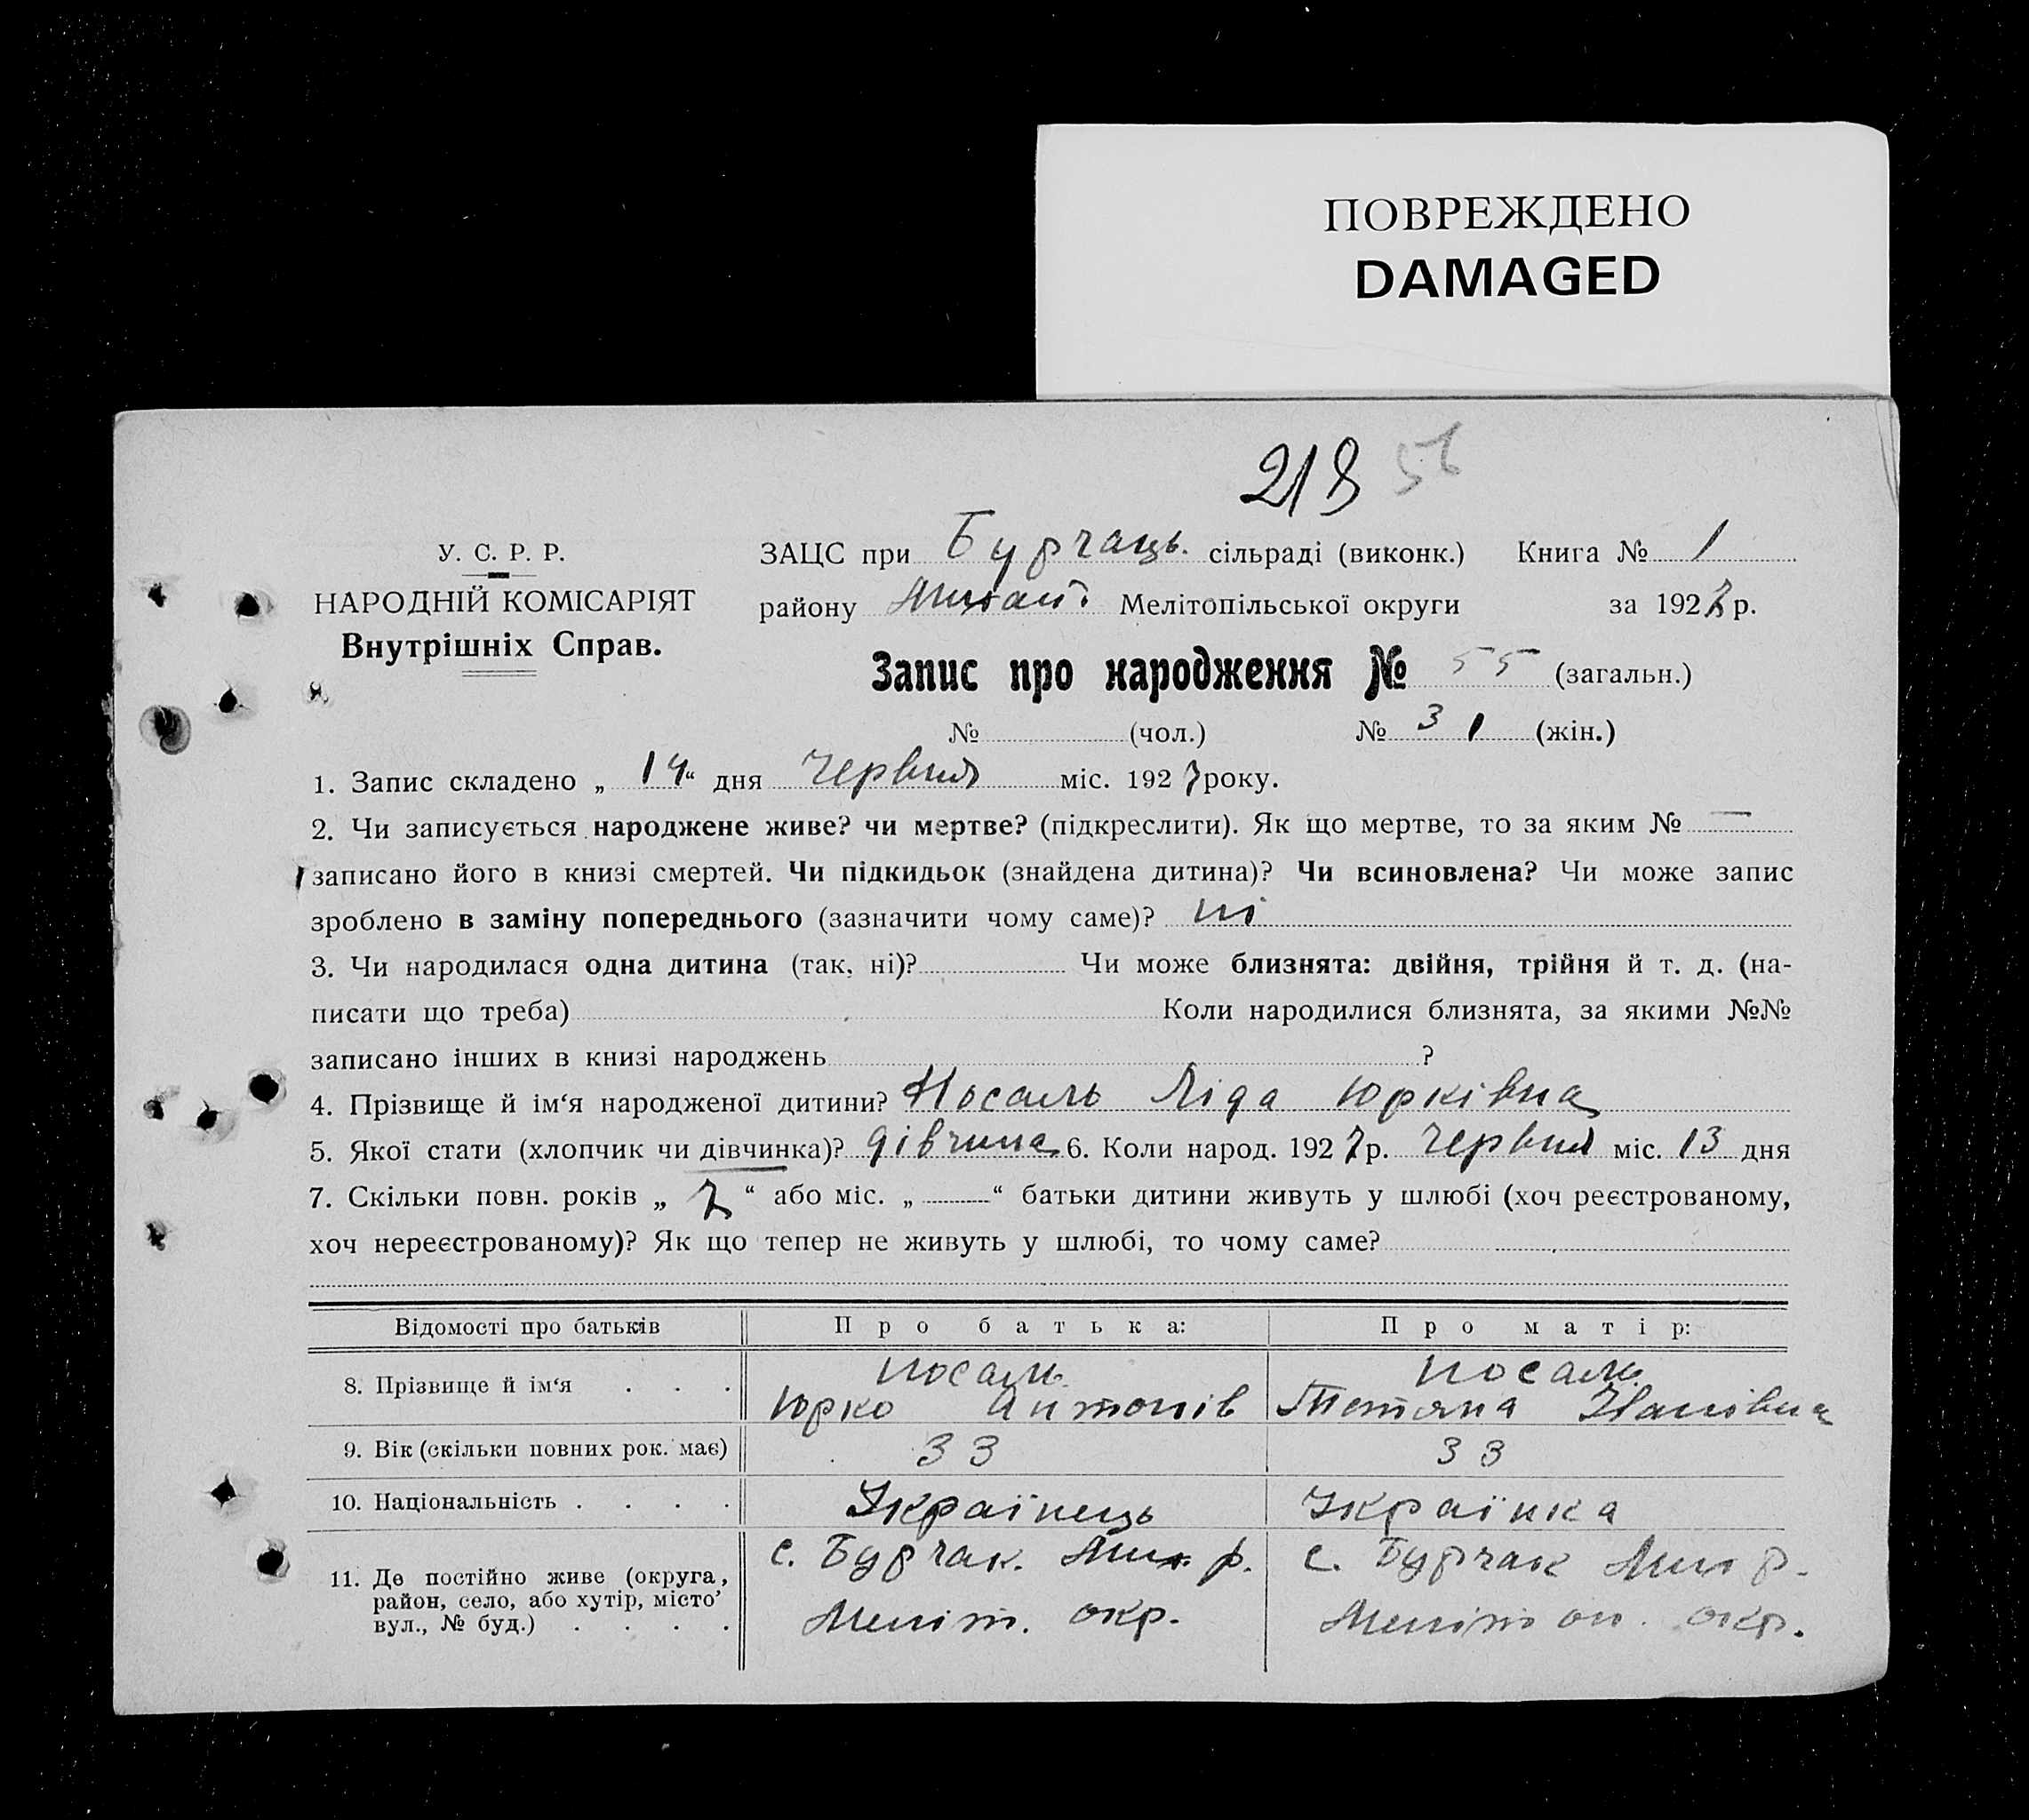 ПОВРЕЖДЕНО
DAMAGED
218 56
У. С. Р. Р.
НАРОДНІЙ КОМІСАРІЯТ
Внутрішніх Справ.
ЗАЦС при Бурчаць. сільраді (виконк.) Книга № 1
району Мелітопільської округи за 1927 р.
Запис про народження № 55 (загальн.)
№ (чол.) № 31 (жін.)
1. Запис складено „ 14 “ дня червня міс. 1927 року.
2. Чи записується народжене живе? чи мертве? (підкреслити). Як що мертве, то за яким № —
записано його в книзі смертей. Чи підкидьок (знайдена дитина)? Чи всиновлена? Чи може запис
зроблено в заміну попереднього (зазначити чому саме)? ні
3. Чи народилася одна дитина (так, ні)? Чи може близнята: двійня, трійня й т. д. (на-
писати що треба) Коли народилися близнята, за якими №№
записано інших в книзі народжень ?
4. Прізвище й ім‘я народженої дитини? Носаль Ліда Юрківна
5. Якої стати (хлопчик чи дівчинка)? дівчина 6. Коли народ. 1927 р. червня міс. 13 дня
7. Скільки повн. років „ 7 “ або міс. „ “ батьки дитини живуть у шлюбі (хоч реєстрованому,
хоч нереєстрованому)? Як що тепер не живуть у шлюбі, то чому саме?
Відомості про батьків Про батька: Про матір:
8. Прізвище й ім‘я . . . Носаль Юрко Антонів Носаль Тетяна Іванівна
9. Вік (скільки повних рок. має) 33 33
10. Національність . . . . Українець Українка
11. Де постійно живе (округа,
район, село, або хутір, місто’
вул., № буд.) . . . .
с. Бурчак. р.
Меліт. окр.
с. Бурчак р.
Мелітоп. окр.